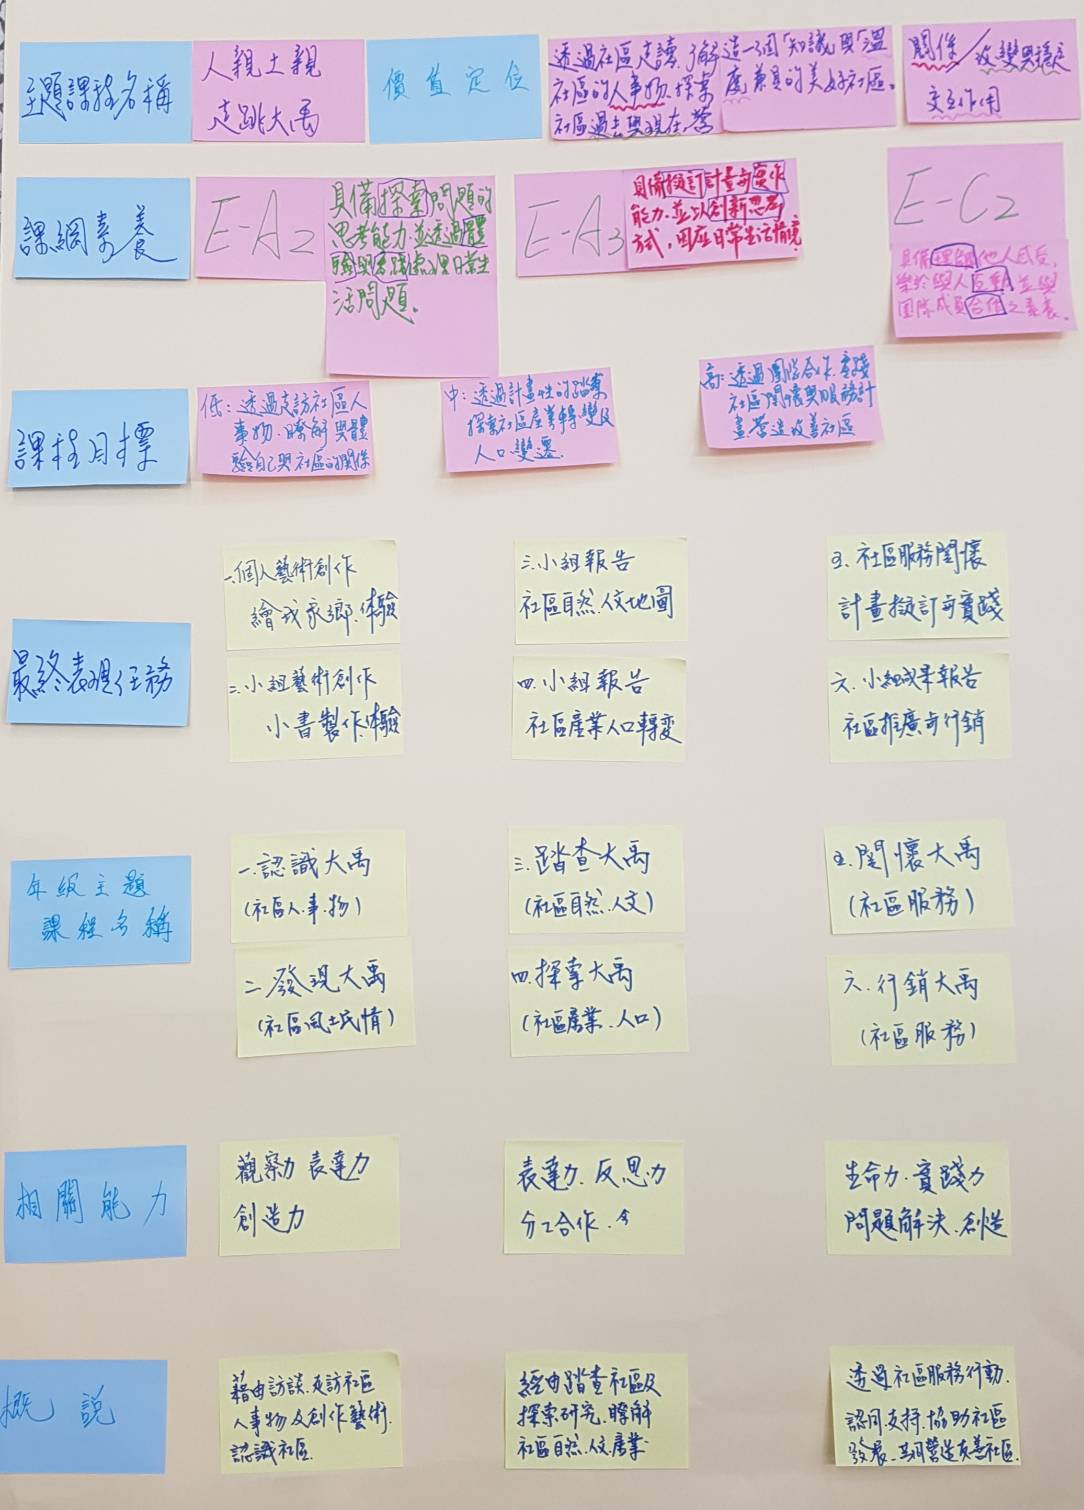 主題課程名稱
人親土親
走跳大禹
價值定位
透過社區走讀,了解
社區的人事物.探索
社區過去與現在,營
造一個「知識」與「溫
度」兼具的美好社區。
關係/改變與穩定
交互作用
課綱素養
E-A2
具備探索問題的
思考能力,並透過體
驗與實踐處理日常生
活問題。
E-A3
具備擬訂計畫與實作
能力,並以創新思考
方式,因應日常生活情境
E-C2
具備理解他人感受,
樂於與人互動,並與
團隊成員合作之素養。
課程目標
低:透過走訪社區人
事物.瞭解與體
驗自己與社區的關係
中:透過計畫性的踏察
探索社區產業轉變及
人口變遷.
高:透過團隊合作.實踐
社區關懷與服務計
畫營造改善社區
最終表現任務
一.個人藝術創作
繪我家鄉.体驗
三.小組報告
社區自然.人文地圖
五.社區服務關懷
計畫擬訂与實踐
二.小組藝術創作
小書製作.体驗
四.小組報告
社區產業人口轉變
六.小組成果報告
社區推廣与行銷
年級主題
課程名稱
一.認識大禹
(社區人.事.物)
三.踏查大禹
(社區自然.人文)
五.關懷大禹
(社區服務)
二.發現大禹
(社區風土民情)
四.探索大禹
(社區產業.人口)
六.行銷大禹
(社區服務)
相關能力
觀察力 表達力
創造力
表達力.反思力
分工合作.
生命力.實踐力
問題解決.創造
概說
藉由訪談.走訪社區
人事物及創作藝術.
認識社區.
經由踏查社區及
探索研究.瞭解
社區自然.人文.產業
透過社區服務行動.
認同.支持.協助社區
發展.共同營造友善社區.